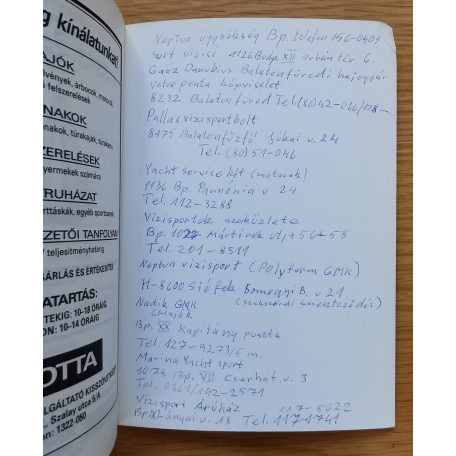 g kínálatunkat
AJÓK
övények, árbocok, motorok,
ó felszerelések
NAKOK
onakok, túrakajak, túrakenu
ZERELÉSEK
yermekek számára
TRUHÁZAT
rttáskák, egyéb sportzsánerű
ZETŐI TANFOLYAM
/ teljesítményhatárig
SÁRLÁS ÉS ÉRTÉKESÍTÉS
ATARTÁS:
TEKIG: 10–18 ÓRÁIG
ON: 10–14 ÓRÁIG
OTTA
LGÁLTATÓ KISSZÖVETKEZET
., Szalay utca 5/A
on: 1322-050
Neptun ügynökség Bp. telefon 156-0403
surf vizisí 1126 Budp. XII orbán tér. 6.
Ganz Danubius Balatonfüredi hajógyár
Volvo penta képviselet
8232 Balatonfüred Tel. (86)42-066/108
Pallas vizisportbolt
8175 Balatonfűzfő Jókai u. 24
Tel. (80) 51-046
Yacht service kft (motorok)
1136 Bp. Pannónia u 24
Tel. 112-3288
Vizisportok szaküzlete
Bp. 1022 Mártírok útja 56-58
Tel. 201-8511
Neptun vizisport (Polyform GMK)
H-8600 Siófok Somogyi B. u. 21
Nautik GMK (szekszárdi
Bp. XX Kapitány puszta
Tel. 127-9273/5 m.
Marina Yacht sport
1073 Bp. VII Csarhát. u. 3
Tel. 0361/142-2571
Vizisport Áruház 117-5622
u. 18 Tel. 117-1741